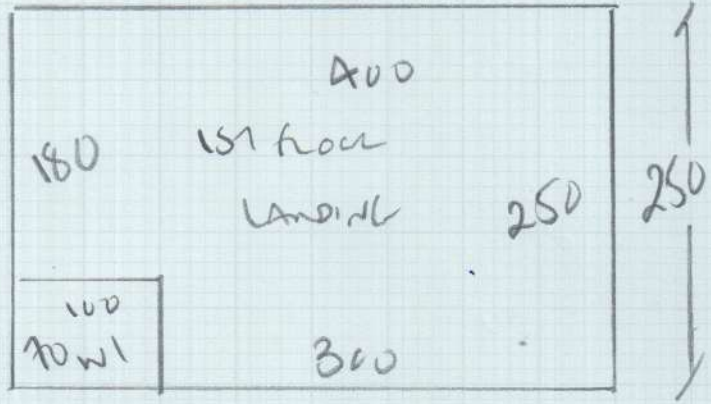 400
180
1ST FLOOR
LANDING
250
250
100
70 W1
300